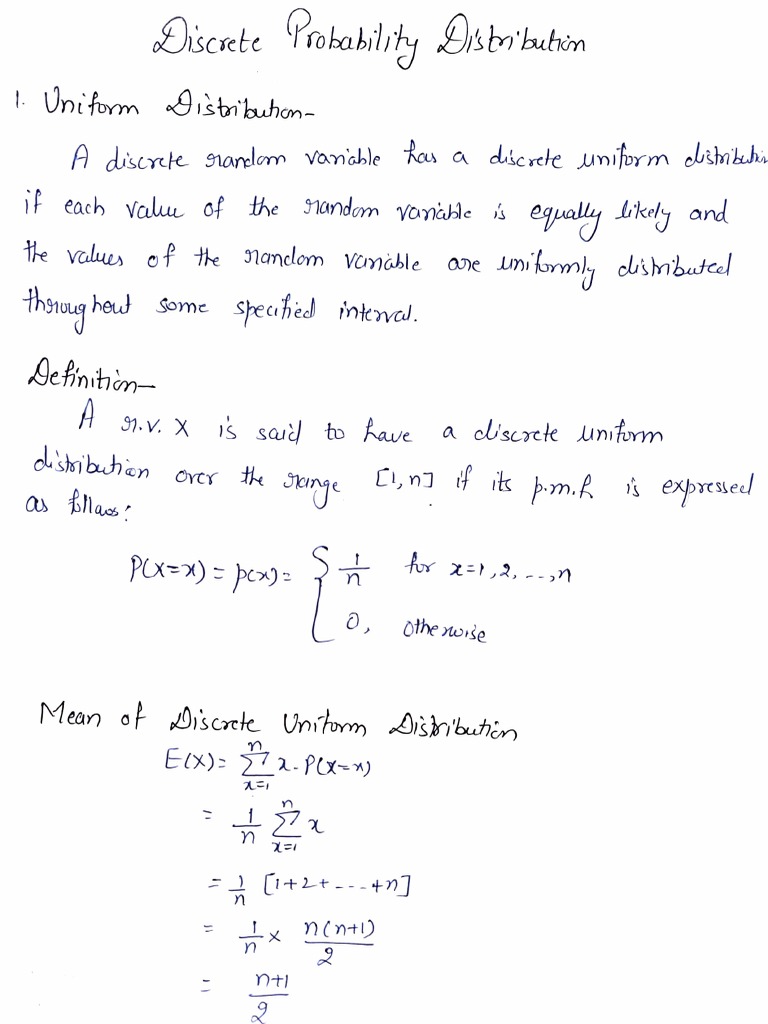 Discrete Probability Distribution
1. Uniform Distribution-
A discrete random variable has a discrete uniform distributi
if each value of the random variable is equally likely and
the values of the random variable are uniformly distributed
throughout some specified interval.
Definition-
A r.v. X is said to have a discrete uniform
distribution over the range [1,n] if its p.m.f. is expressed
as follows:
P(X=x) = p(x) = { 1/n for x=1,2,...,n
0, otherwise
Mean of Discrete Uniform Distribution
E(X) = ∑_{x=1}^{n} x. P(X=x)
= 1/n ∑_{x=1}^{n} x
= 1/n [1+2+----+n]
= 1/n × n(n+1)/2
= n+1/2